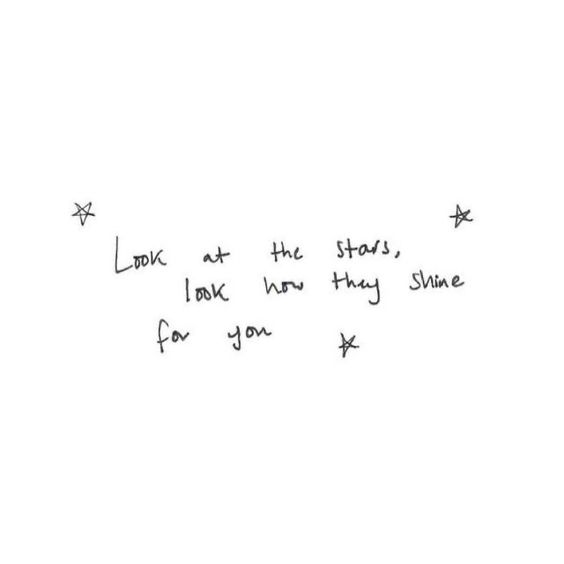 Look at the stars,
look how they shine
for you